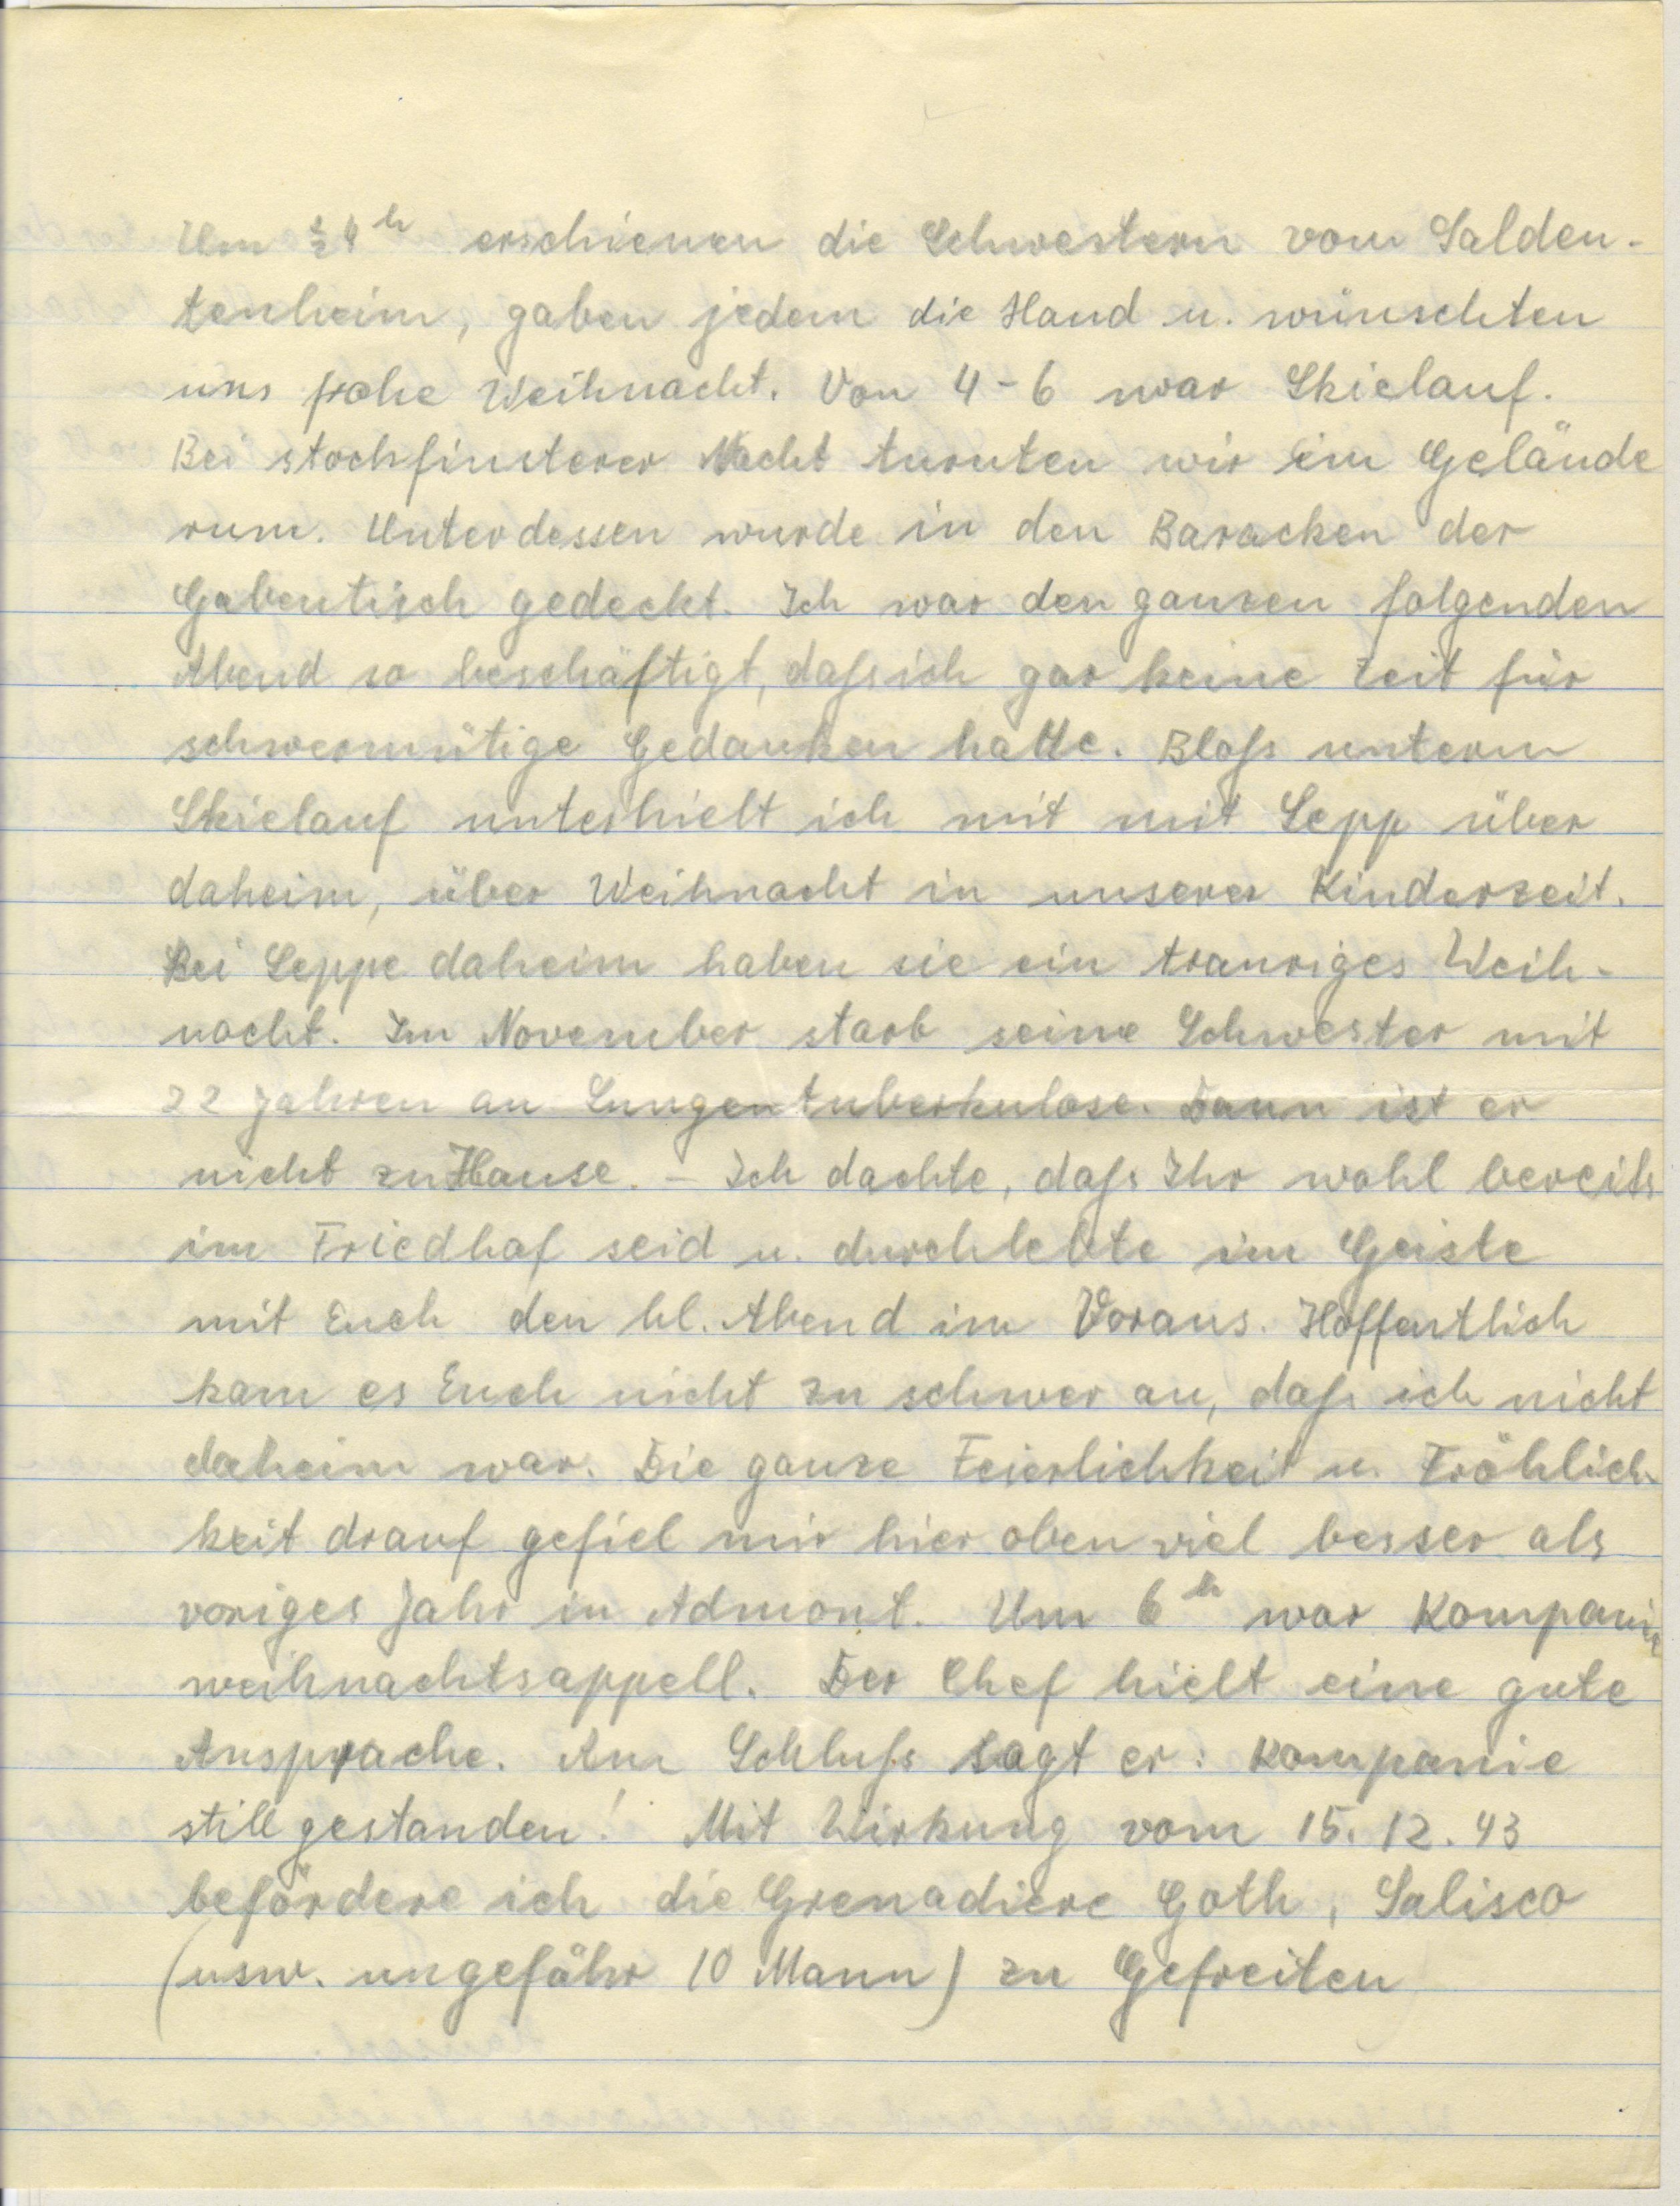 Um ½4 h erschienen die Schwestern vom Salden-
tenheim, gaben jedem die Hand u. wünschten
uns frohe Weihnacht. Von 4-6 war Skielauf.
Bei stockfinsterer Nacht turnten wir im Gelände
rum. Unterdessen wurde in den Baracken der
Gabentisch gedeckt. Ich war den ganzen folgenden
Abend so beschäftigt, dass ich gar keine Zeit für
schwermütige Gedanken hatte. Bloss unterm
Skielauf unterhielt ich mit mit Sepp über
daheim, über Weihnacht in unserer Kinderzeit.
Bei Seppe daheim haben sie ein trauriges Weih-
nacht. Im November starb seine Schwester mit
22 Jahren an Lungentuberkulose. Dann ist er
nicht zu Hause. - Ich dachte, dass Ihr wohl bereits
im Friedhof seid u. durchlebte im Geiste
mit Euch den hl. Abend im Voraus. Hoffentlich
kam es Euch nicht zu schwer an, dass ich nicht
daheim war. Die ganze Feierlichkeit u. Fröhlich-
keit drauf gefiel mir hier oben viel besser als
voriges Jahr in Admont. Um 6 h war Kompanie
weihnachtsappell. Der Chef hielt eine gute
Ansprache. Am Schluss sagt er: Kompanie
still gestanden! Mit Wirkung vom 15. 12. 43
befördere ich die Grenadiere Goth, Salisco
(usw. ungefähr 10 Mann) zu Gefreiten